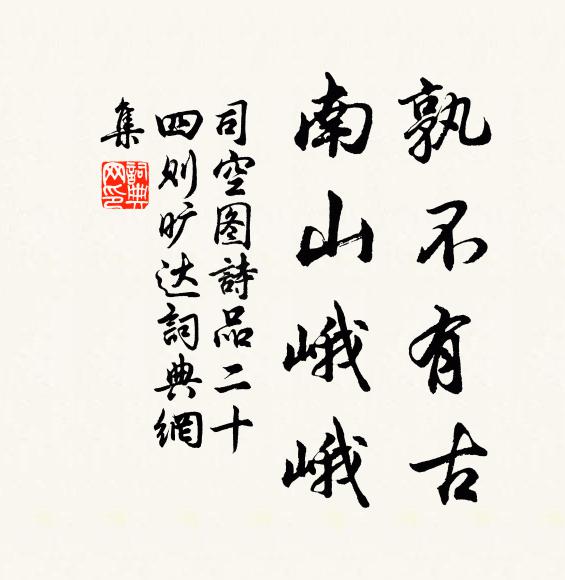 孰不有古
南山峨峨
司空图詩品二十
四则旷达詞典網
集
詞典网印